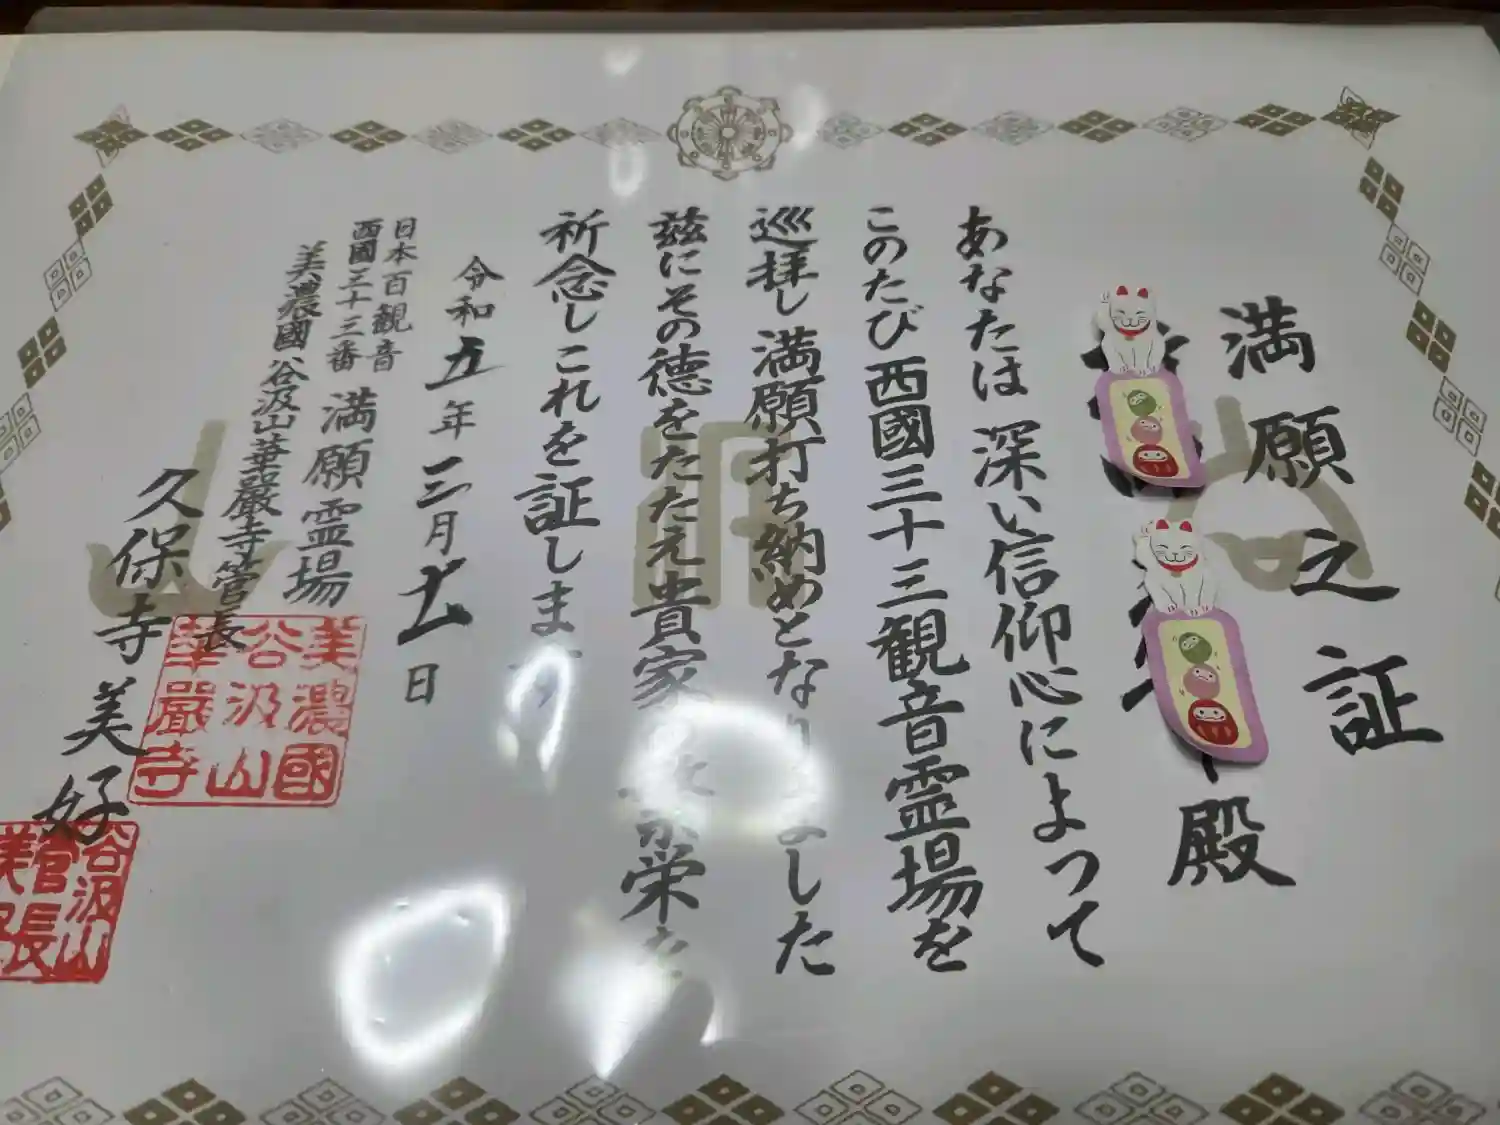 満願之証
殿
あなたは深い信仰心によって
このたび西國三十三観音霊場を
巡拝し満願打ち納めとなりました
茲にその徳をたたえ貴家 栄を
祈念しこれを証します
令和五年三月 日
日本百観音
西國三十三番
満願霊場
美濃國谷汲山華嚴寺管長
久保寺美好
美濃國
谷汲山
華嚴寺
谷汲山
管長